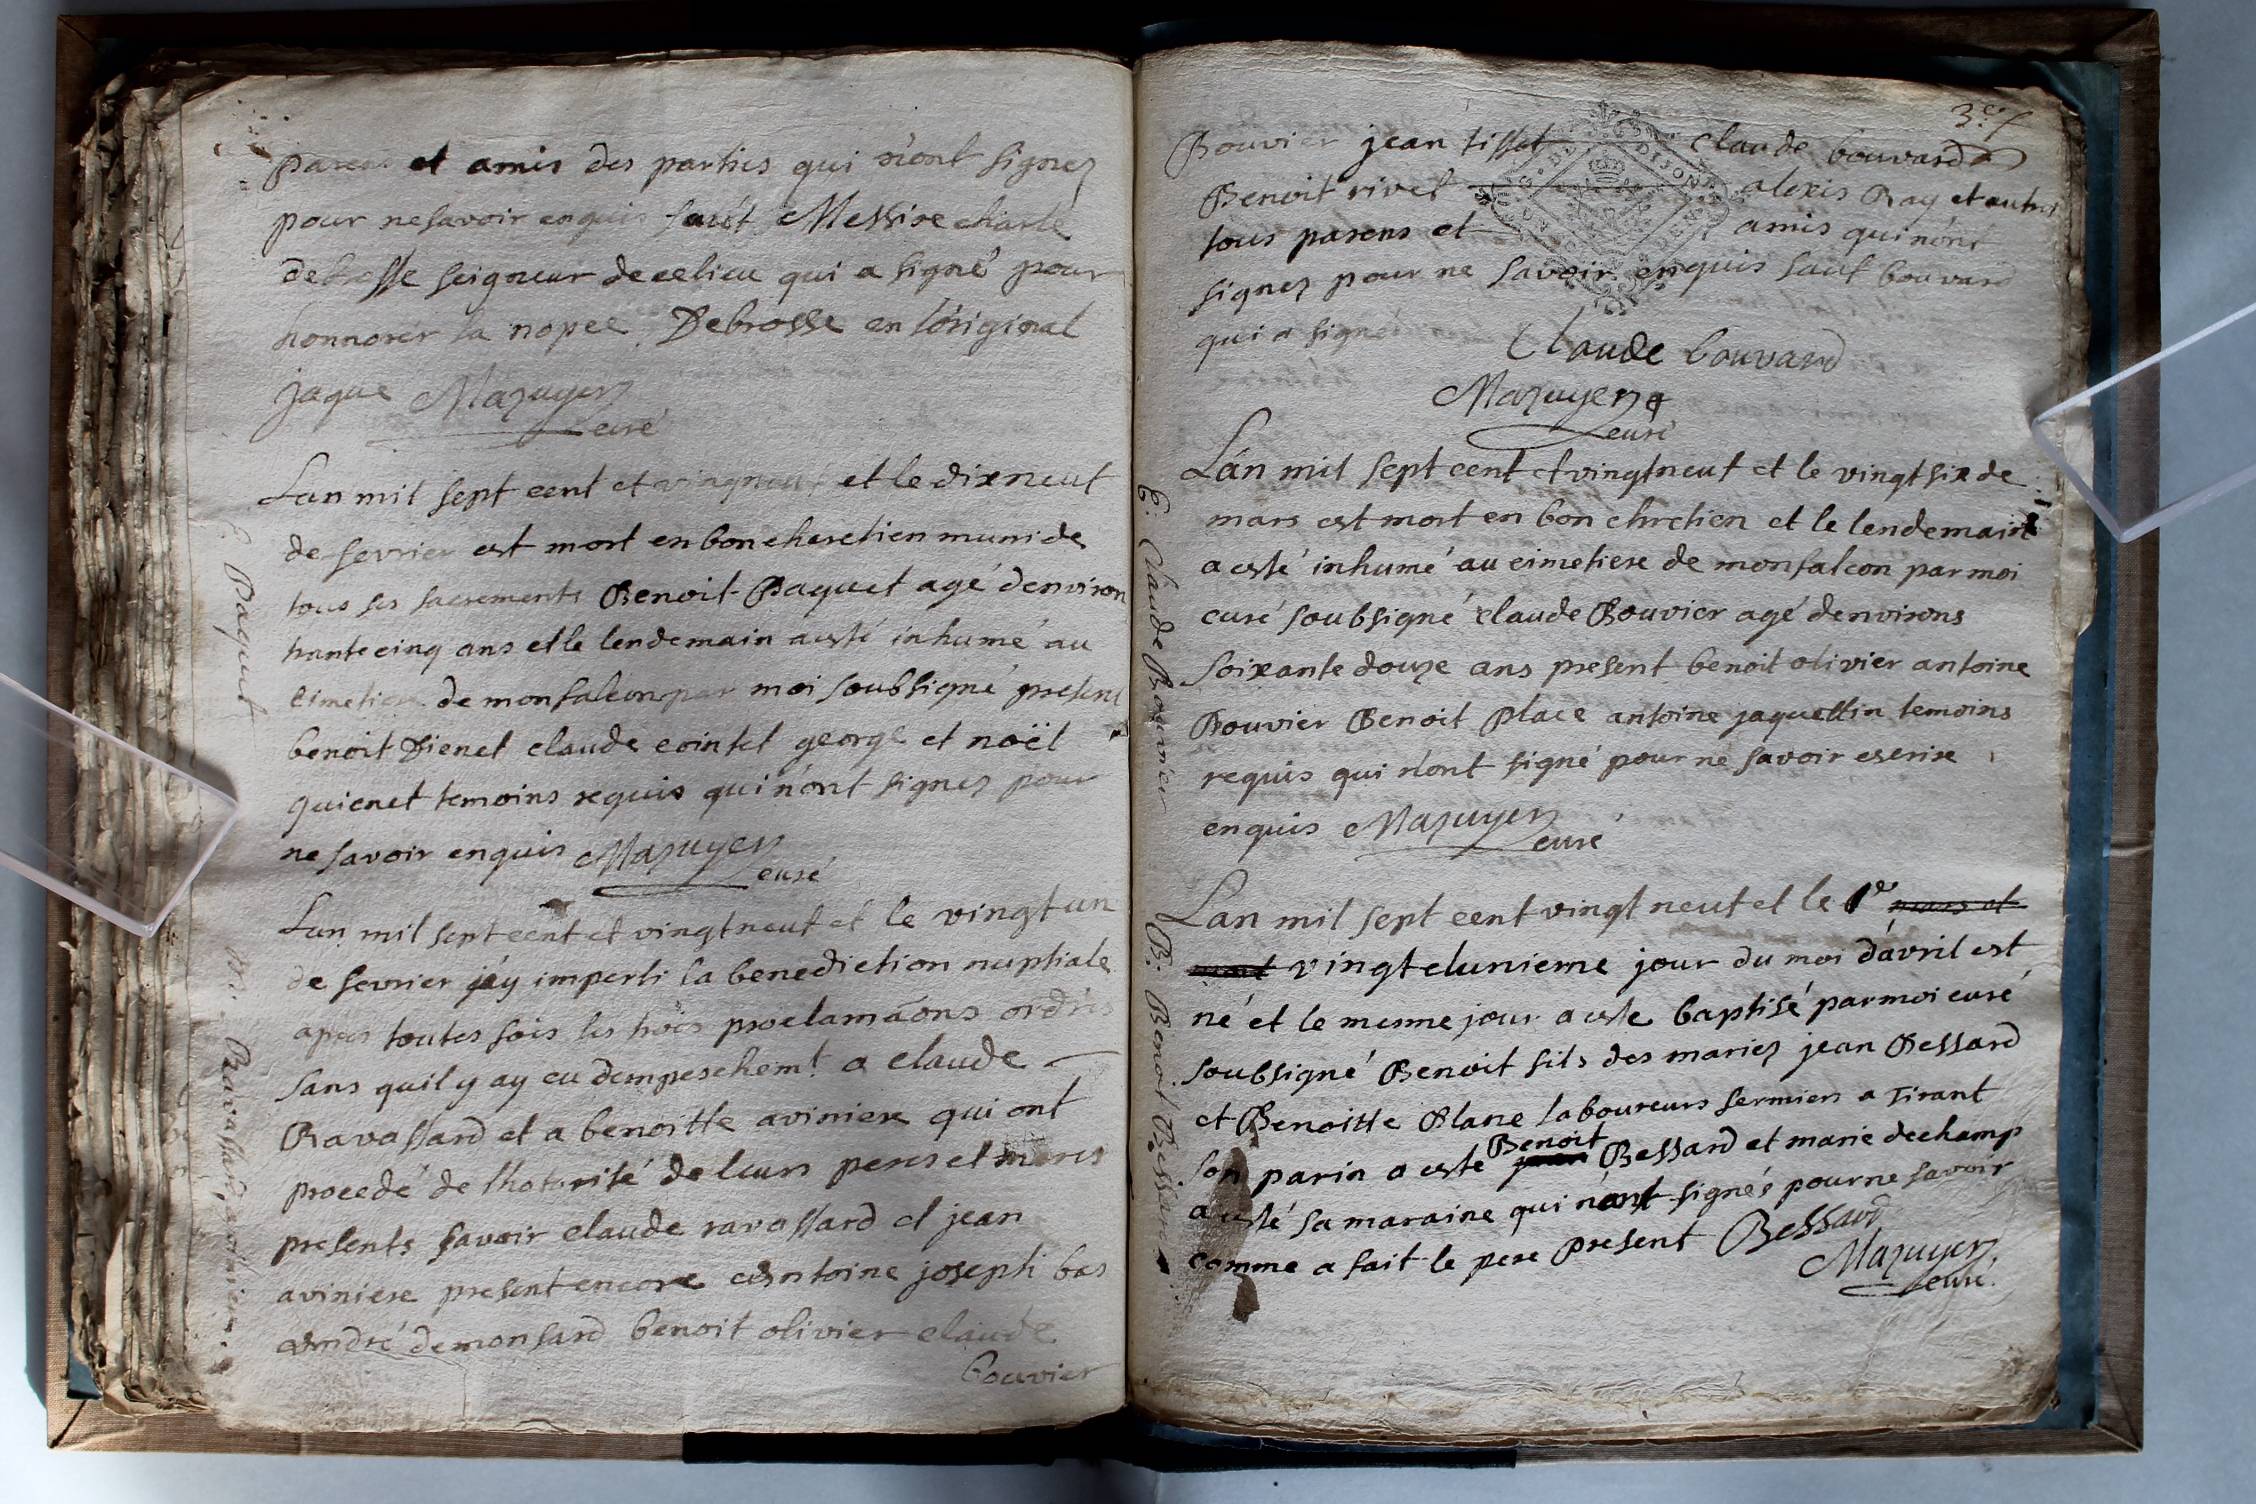 parens et amis des parties qui n'ont signez
pour ne savoir enquis sauf Messire charle
debrosse seigneur de ce lieu qui a signé pour
honnorer la nopce Debrosse en l'original
jaque Mazuyer
curé
Lan mil sept cent et vingneuf et le dixneuf
de fevrier est mort en bon cherestien muni de
tous ses sacrements Benoit Paquet agé denviron
trante cinq ans et le lendemain a esté inhumé au
cimetiere de monfalcon par moi soubsigné present
benoit Dienet claude cointet george et noël
quienet temoins requis qui n'ont signez pour
ne savoir enquis Mazuyer
curé
Lan mil sept cent et vingtneuf et le vingt un
de fevrier j'ay imperti la benediction nuptiale
apres toutes fois les trois proclamãons ordres
sans quil y ay eu dempeschem.t a claude
Ravassard et a benoitte aviniere qui ont
procedé de lhotorité de leurs peres et meres
presents savoir claude ravassard et jean
aviniere present encore antoine joseph bas
andré demonsard benoit olivier claude
bouvier
Paquet
M. Ravassard, aviniere.
3.e
Bouvier jean tissot claude bouvard
Benoit rivet alexis Ray et autres
tous parens et amis qui n'ont
signez pour ne savoir enquis sauf bouvard
qui a signé
Claude bouvard
Mazuyer
curé
Lan mil sept cent et vingtneuf et le vingt six de
mars est mort en bon chretien et le lendemain
a esté inhumé au cimetiere de monfalcon par moi
curé soubsigné claude Bouvier agé denvirons
soixante douze ans present benoit olivier antoine
Bouvier Benoit Place antoine jaquettin temoins
requis qui n'ont signé pour ne savoir escrire
enquis Mazuyer
curé
Lan mil sept cent vingt neuf et le 1.e mars et
mort vingtelunieme jour du moi d'avril est
né et le mesme jour a este baptisé par moi curé
soubsigné Benoit fils des mariez jean Bessard
et Benoitte Blanc laboureurs fermiers a Tirant
Benoit
son parin a este jean Bessard et marie dechamp
a esté sa maraine qui n'ont signés pour ne savoir
comme a fait le pere present Bessard
Mazuyer
curé.
E: Claude Bouvier
B: Benoit Bessard